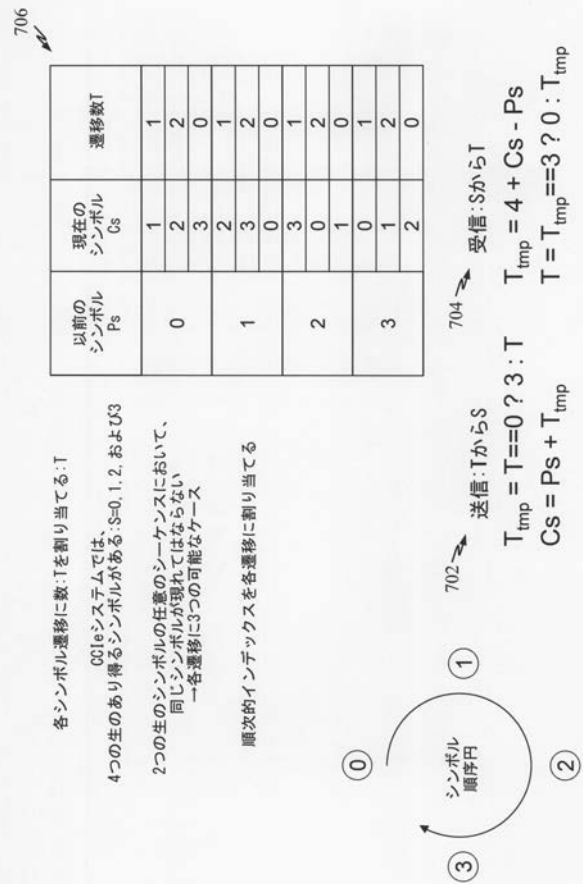 各シンボル遷移に数:Tを割り当てる:T
CCIeシステムでは、
4つの生のあり得るシンボルがある:S=0, 1, 2, および3
2つの生のシンボルの任意のシーケンスにおいて、
同じシンボルが現れてはならない
→各遷移に3つの可能なケース
順次的インデックスを各遷移に割り当てる
706
以前の
シンボル
Ps
現在の
シンボル
Cs
遷移数T
0
1 1
2 2
3 0
1
2 1
3 2
0 0
2
3 1
0 2
1 0
3
0 1
1 2
2 0
0
1
2
3
シンボル
順序円
702
送信:TからS
Ttmp = T==0 ? 3 : T
Cs = Ps + Ttmp
704
受信:SからT
Ttmp = 4 + Cs - Ps
T = Ttmp==3 ? 0 : Ttmp